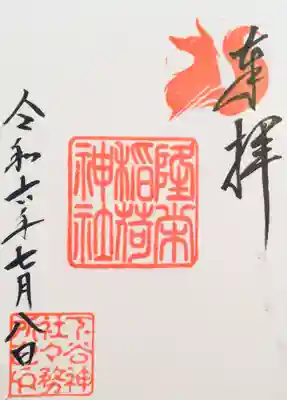 奉拝
隆栄
稲荷
神社
令和六年七月八日
下谷神
社々務
所之印